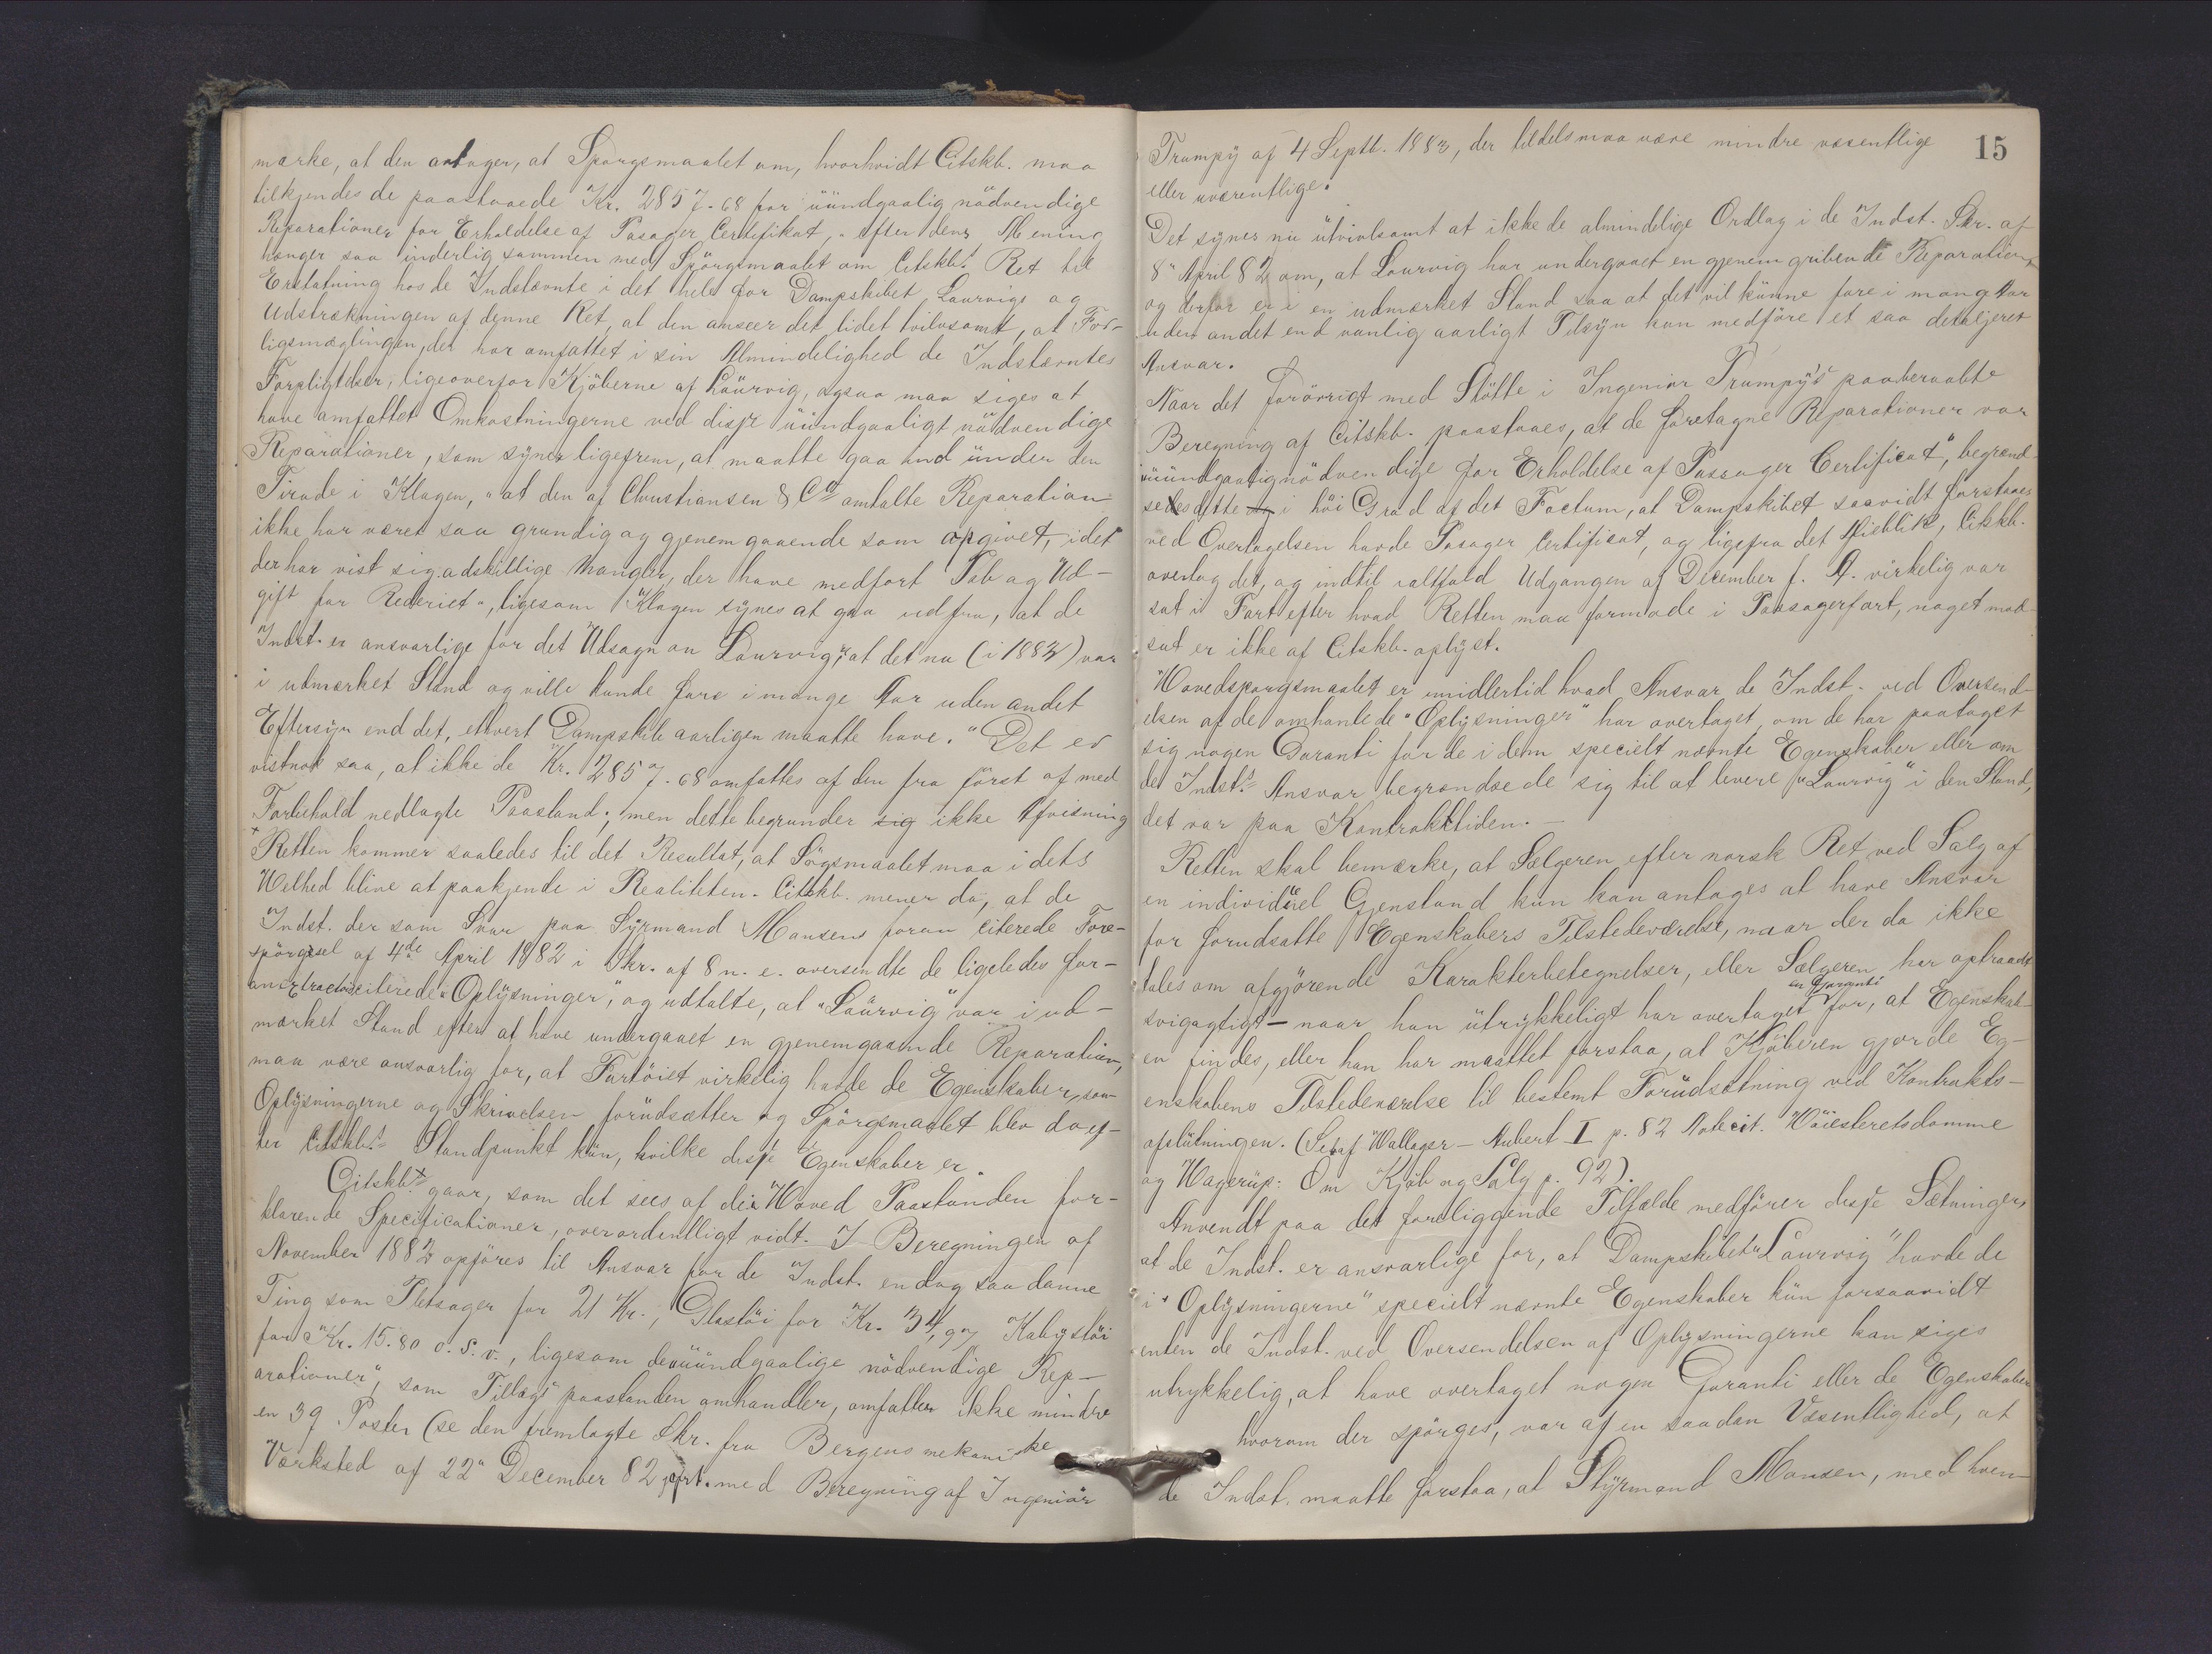 mærke, at den antager, at Spørgsmaalet om, hvorhvidt Citskb. maa
tilkjendes de paastaaede Kr. 2857.68 for uundgaalig nødvendige
Reparationer for Erholdelse af Pasager Certifikat, " efter dens Mening
hænger saa inderlig sammen med Spörgsmaalet om Citskb.s Ret til
Erstatning hos de Indstævnte i det hele for Dampskibet Laurvigs og
Udstrækningen af denne Ret, at den anseer det lidet tvilvsomt, at For-
ligsmæglingen, der har omfattet i sin Almindelighed de Indstævntes
Forpligtelser, ligeoverfor Kjöberne af Laurvig, ogsaa maa siges at
have omfattet Omkostningerne ved disse uundgaaligt nödvendige
Reparationer, som synes ligefrem, at maatte gaa ind under den
Tirade i Klagen, "at den af Christiansen & Co omtalte Reparation
ikke har været saa grundig og gjenemgaaende som opgivet, idet
der har vist sig adskillige Mangler, der have medfört Tab og Ud-
gift for Rederiet", ligesom Klagen synes at gaa ud fra, at de
Indst. er ansvarlige for det Udsagn om Laurvig, "at det nu (i 1882) var
i udmærket Stand og ville kunde fare i mange Aar uden andet
Eftersyn end det, ethvert Dampskib aarligen maatte have." Det er
vistnok saa, at ikke de Kr. 2857.68 omfattes af den fra först af med
Forbehold nedlagte Paastand; men dette begrunder sig ikke Afvisning
Retten kommer saaledes til det Resultat, at Sögsmaalet maa i dets
Helhed blive at paakjende i Realiteten. Citskb. mener da, at de
Indst. der som Svar paa Syrmand Monsens foran citerede Fore-
spörgsel af 4de April 1882 i Skr. af 8 n. e. oversendte de ligeledes for-
an extractsciterede "Oplysninger", og udtalte, at "Laurvig" var i ud-
mærket Stand efter at have undergaaet en gjenemgaaende Reparation,
maa være ansvarlig for, at Fartöiet virkelig havde de Egenskaber, som
Oplysningerne og Skrivelsen forudsætter og Spörgsmaalet blev da ef-
ter Citskb.s Standpunkt kun, hvilke disse Egenskaber er.
Citskb. gaar, som det sees af de i Hoved Paastanden for-
klarende Specificationer, overordentlligt vidt. I Beregningen af
November 1882 opføres til Ansvar for de Indst. endog saadanne
Ting som Pletsager for 21 Kr., Glastöi for Kr. 34,97 Kabystöi
for Kr. 15.80 o. s. v., ligesom de "uundgaalige nödvendige Rep-
arationer", som Tillægspaastanden omhandler, omfatter ikke mindre
en 39 Poster (se den fremlagte Skr. fra Bergens mekaniske
Værksted af 22 December 82, jfrt. med Beregning af Ingeniör
15
Trumpy af 4 Septb. 1883, der tildels maa være mindre væsentlige
eller uvæsentlige.
Det synes nu utvivlsomt at ikke de almindelige Ordlag i de Indst. Skr. af
8 April 82 om, at Laurvig har undergaaet en gjenemgribende Reparation,
og derfor er i en udmærket Stand saa at det vil kunne fare i mang Aar
uden andet end vanlig aarligt Tilsyn kan medföre et saa detaljeret
Ansvar.
Naar det forövrigt med Stötte i Ingeniör Trumpy's paaberaabte
Beregning af Citskb. paastaaes, at de foretagne Reparationer var
"uundgaalig nödvendige for Erholdelse af Passager Certificat", begrænd-
sedes dette i höi Grad af det Factum, at Dampskibet saavidt forstaaes
ved Overtagelsen havde Pasager Certificat, og ligefra det Øieblik, Citskb.
overtog det, og indtil ialtfald Udgangen af December f. A. virkelig var
sat i Fart efter hvad Retten maa formode i Passagerfart, noget mod-
sat er ikke af Citskb. oplyst.
Hovedspørgsmaalet er imidlertid hvad Ansvar de Indst. ved Oversend-
elsen af de omhantlede "Oplysninger" har overtaget, om de har paataget
sig nogen Garanti for de i dem specielt nævnte Egenskaber eller om
de Indst.s Ansvar begrændsede sig til at levere "Laurvig" i den Stand,
det var paa Kontrakttiden.—
Retten skal bemærke, at Sælgeren efter norsk Ret ved Salg af
en individuel Gjenstand kun kan antages at have Ansvar
for forudsatte Egenskabers Tilstedeværelse, naar der da ikke
tales om afgjörende Karakterbetegnelser, eller Sælgeren har optraadt
svigagtigt — naar han utrykkeligt har overtaget en Garanti for, at Egenskab-
en findes, eller han har maattet forstaa, at Kjöberen gjorde Eg-
enskabens Tilstedeværelse til bestemt Forudsætning ved Kontrakts-
afslutningen. (Se Hallager-Aubert I p. 82 Note cit. Höiesteretsdomme
og Hagerup: Om Kjöb og Salg p. 92).
Anvendt paa det foreliggende Tilfælde medförer disse Sætninger,
at de Indst. er ansvarlige for, at Dampskibet "Laurvig" havde de
i "Oplysningerne" specielt nævnte Egenskaber kun forsaavidt
enten de Indst. ved Oversendelsen af Oplysningerne kan siges
utrykkelig, at have overtaget nogen Garanti eller de Egenskaber
hvorom der spörges, var af en saadan Væsentlighed, at
de Indst. maatte forstaa, at Styrmand Monsen, med hven-